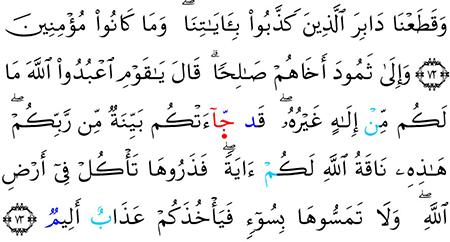 وَقَطَعْنَا دَابِرَ ٱلَّذِينَ كَذَّبُوا۟ بِـَٔايَـٰتِنَا ۖ وَمَا كَانُوا۟ مُؤْمِنِينَ
﴿٧٢﴾ وَإِلَىٰ ثَمُودَ أَخَاهُمْ صَـٰلِحًا ۗ قَالَ يَـٰقَوْمِ ٱعْبُدُوا۟ ٱللَّهَ مَا
لَكُم مِّنْ إِلَـٰهٍ غَيْرُهُۥ ۖ قَد جَّآءَتْكُم بَيِّنَةٌ مِّن رَّبِّكُمْ ۖ
هَـٰذِهِۦ نَاقَةُ ٱللَّهِ لَكُمْ ءَايَةً ۖ فَذَرُوهَا تَأْكُلْ فِىٓ أَرْضِ
ٱللَّهِ ۖ وَلَا تَمَسُّوهَا بِسُوٓءٍ فَيَأْخُذَكُمْ عَذَابٌ أَلِيمٌ ﴿٧٣﴾